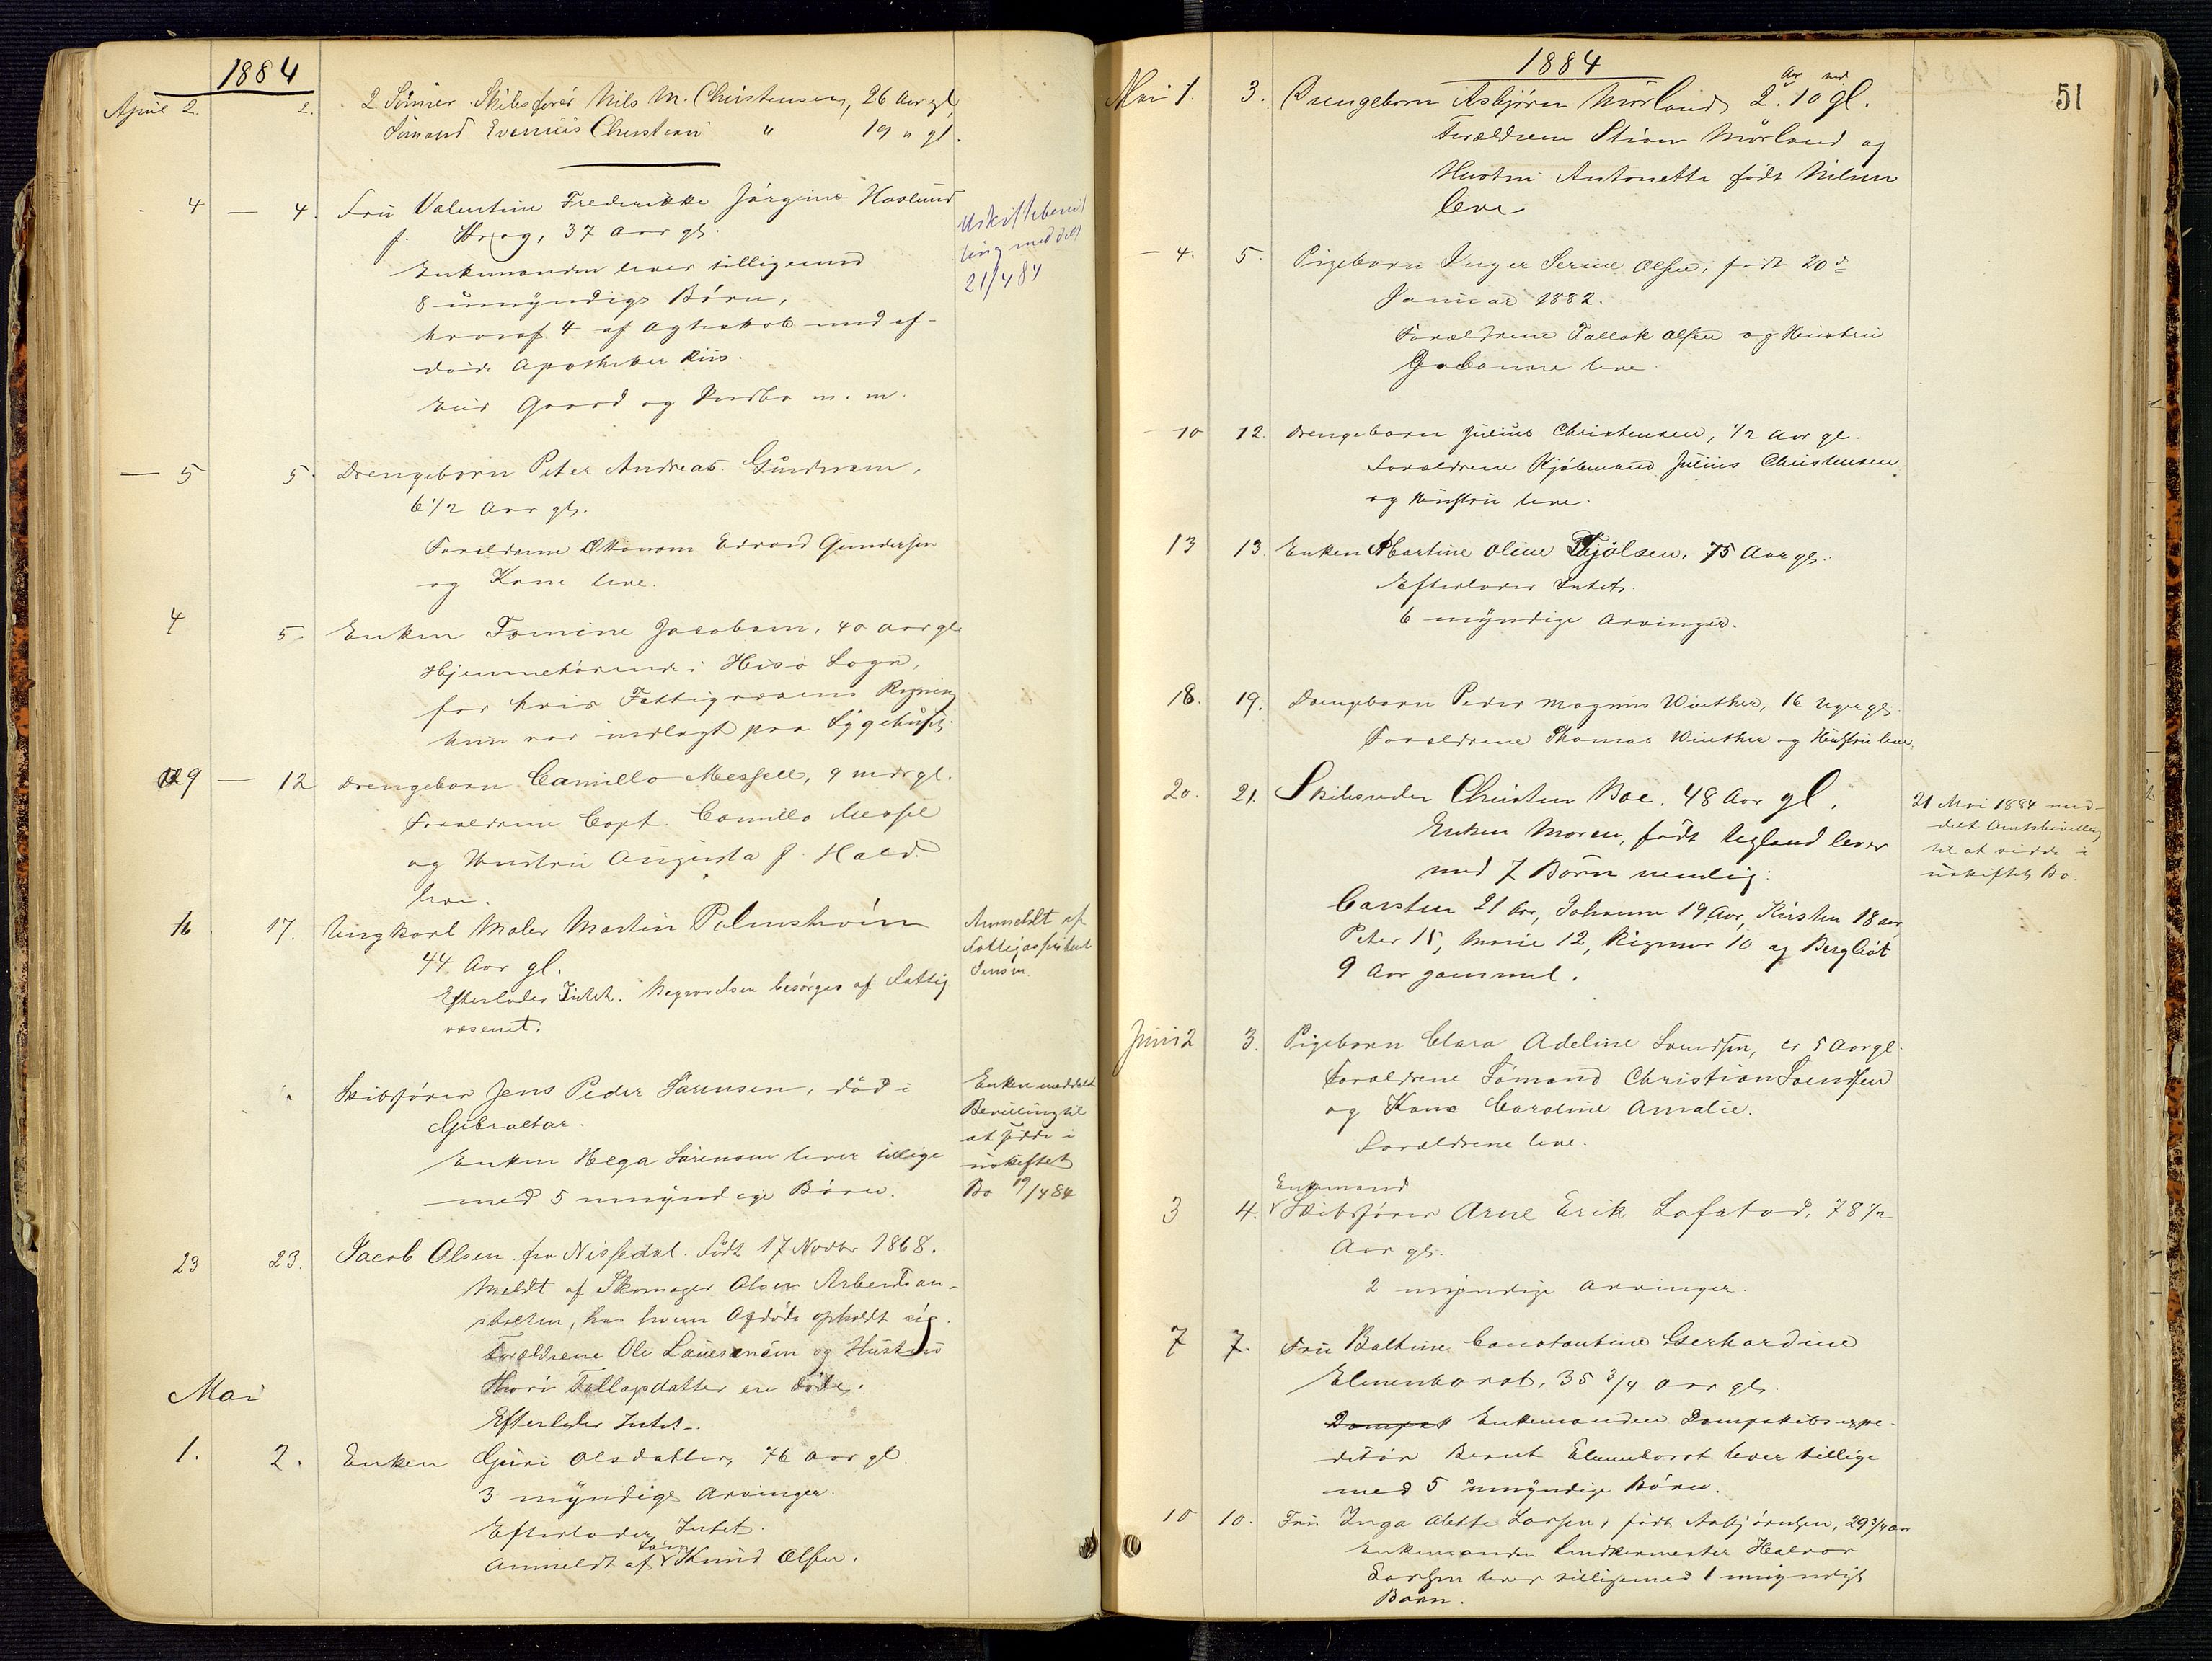 1884
April 2. 2. 2 Sönner Skibsförer Nils M. Christensen, 26 Aar gl,
Sömand Evenius Christian " 19 " gl.
4 — 4. Fru Valentine Frederikke Jörgine Haslund
f. Krog, 37 Aar gl.
Enkemanden lever tilligemed
8 umyndige Börn,
hvoraf 4 af Ægteskab med af-
döde Apotheker Riis.
Eier Gaard og Indbo m. m.
Uskiftebevil
ling meddelt
21/4 84
— 5 5. Drengebarn Peter Andreas Gundersen,
6 1/2 Aar gl.
Forældrene Økonom Edvard Gundersen
og Kone leve.
4 5. Enken Tomine Jacobsen, 40 Aar gl.
Hjemmehörende i Hisö Sogn,
for hvis Fattigvæsens Regning
hun var indlagt paa Sygehuset.
9 — 12 Drengebarn Camillo Messell, 9 mdr gl.
Forældrene Capt. Camillo Messel
og Hustru Augusta f. Hald
leve.
16 17. Ungkarl Maler Martin Palmström
44 Aar gl.
Efterlader Intet. Begravelsen besörges af Fattig
væsenet.
Anmeldt af
Fattigassistent
Jensen.
Skibsförer Jens Peder Sörensen, död i
Gibraltar.
Enken Helga Sörensen lever tillige
med 5 umyndige Börn.
Enken meddelt
Bevilling til
at sidde i
uskiftet
Bo 19/4 84
23 23. Jacob Olsen fra Nissedal. Födt 17 Novbr 1868.
Meldt af Skomager Olsen Arbeidsan-
stalten, hos hvem Afdöde opholdt sig.
Forældrene Ole og Hustru
Thori Tallagsdatter ere döde.
Efterlader Intet.
Mai
1. 2. Enken Guri Olsdatter, 76 Aar gl.
3 myndige Arvinger.
Efterlader Intet.
Anmeldt af Sön Knud Olsen.
1884
51
Mai 1. 3. Drengebarn Asbjörn Mörland, 2 Aar 10 md gl.
Forældrene Stian Mörland og
Hustru Antonette födt Nilsen
leve
— 4. 5. Pigebarn Inger Serine Olsen, födt 20de
Januar 1882.
Forældrene Tallak Olsen og Hustru
Gobanne leve.
— 10 12. Drengebarn Julius Christensen, 1/2 Aar gl.
Forældrene Kjöbmand Julius Christensen
og Hustru leve.
13 13. Enken Martine Oline Thjölsen, 75 Aar gl.
Efterlader Intet.
6 myndige Arvinger.
18. 19. Drengebarn Peder Magnus Winther, 16 Uger gl.
Forældrene Thomas Winther og Hustru leve.
20. 21. Skibsreder Christen Boe. 48 Aar gl.
Enken Maren, födt Ugland lever
med 7 Börn nemlig:
Carsten 21 Aar, Johanne 19 Aar, Kirsten 18 aar,
Peter 15, Marie 12, Rigmor 10 og Bergliot
9 Aar gammel.
21 Mai 1884 med-
delt Amtsbevilling
til at sidde i
uskiftet Bo.
Juni 2 3. Pigebarn Clara Adeline Svendsen, ca 5 Aar gl.
Forældrene Sömand Christian Svendsen
og Kone Caroline Amalie.
Forældrene leve.
3 4. Enkemand Skibsförer Arne Erik Lofstad, 78 1/2
Aar gl.
2 myndige Arvinger.
7 7. Fru Baltine Constantine Gerhardine
Elmenhorst, 35 3/4 Aar gl.
Dampsk Enkemanden Dampskibsexpe-
ditör Bernt Elmenhorst lever tillige
med 5 umyndige Börn.
10 10. Fru Inga Alette Larsen, födt Asbjörnsen, 29 3/4 Aar
Enkemanden Snedkermester Halvor
Larsen lever tilligemed 1 umyndigt
Barn.